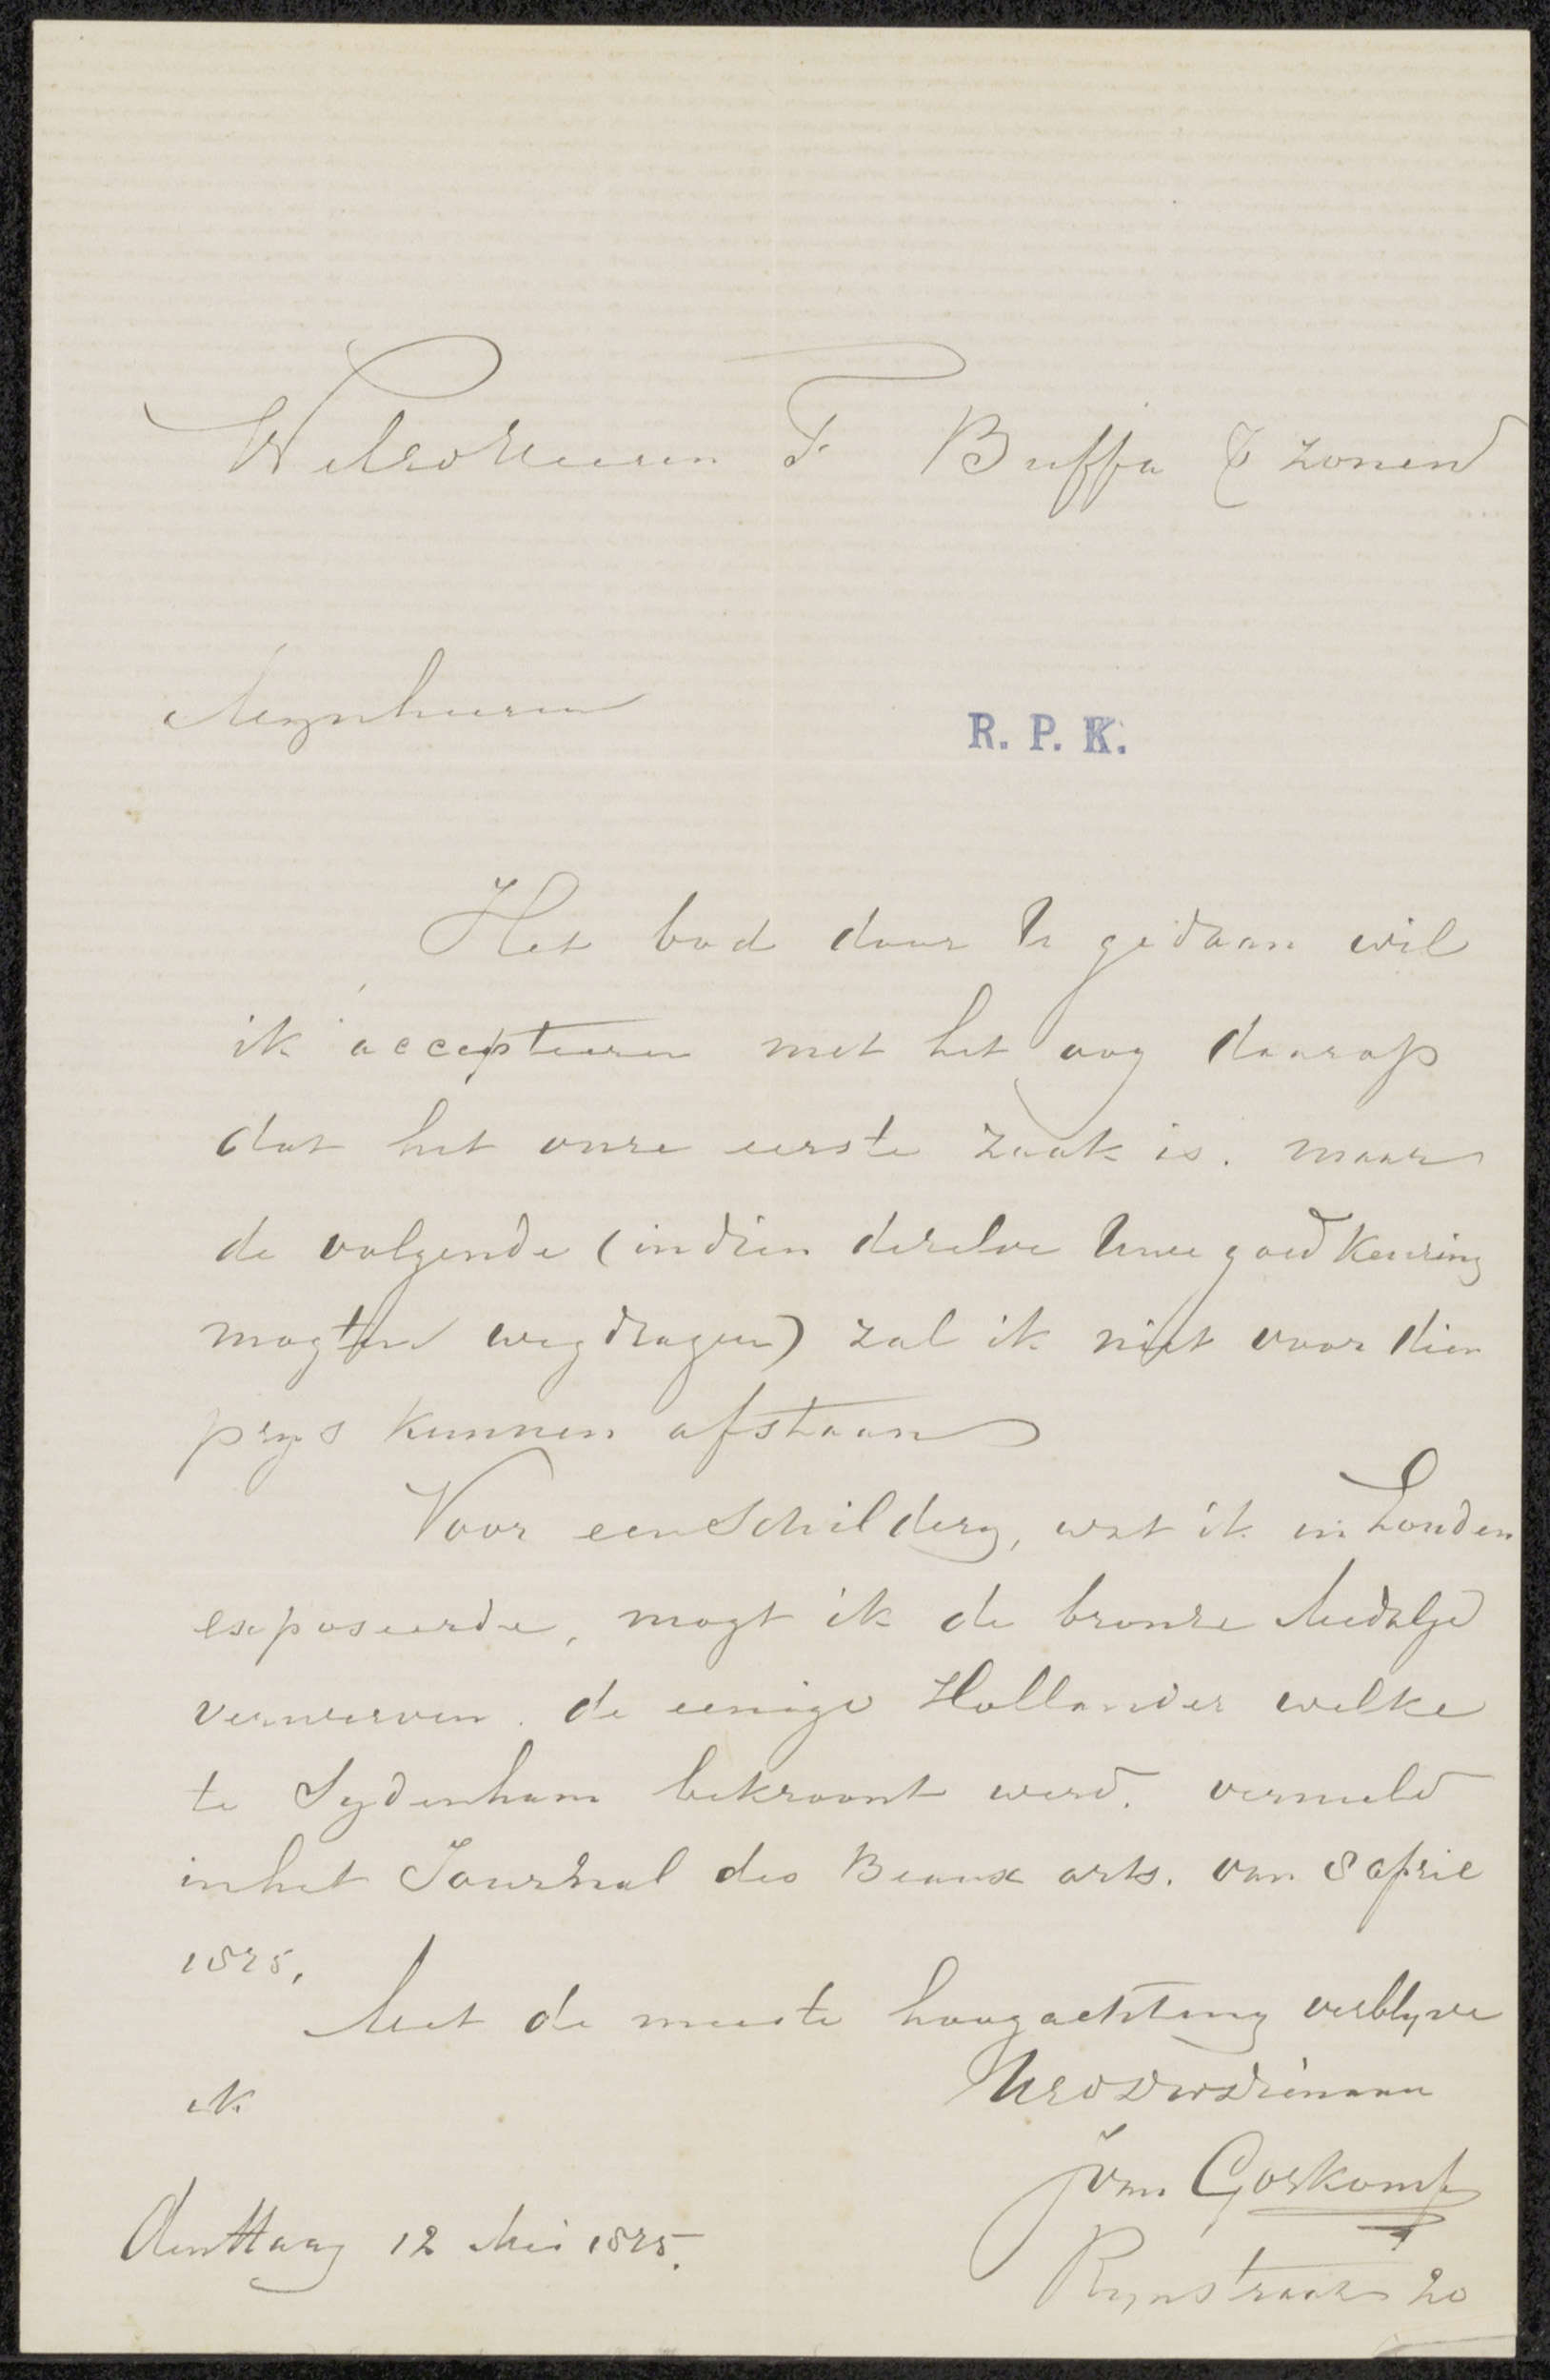 WelEdHeeren F Buffa & zonen
Mynheeren
R. P. K.
Het bod door U gedaan wil
ik accepteeren met het oog daarop
dat het onze eerste zaak is. maar
de volgende (indien dezelve Uwe goedkeuring
mogten wegdragen) zal ik niet voor dien
prys kunnen afstaan
Voor een Schildery, wat ik in Londen
exposeerde, mogt ik de bronze Medalje
verwerven. de eenige Hollander welke
te Sydenham bekroont werd. vermeld
in het Journal des Beaux arts. van 8 april
1875.
Met de meeste hoogachting verblyve
ik
UEd Dw Dienaar
J van Gorkom
den Haag 12 Mei 1875.
Rynstraat 20